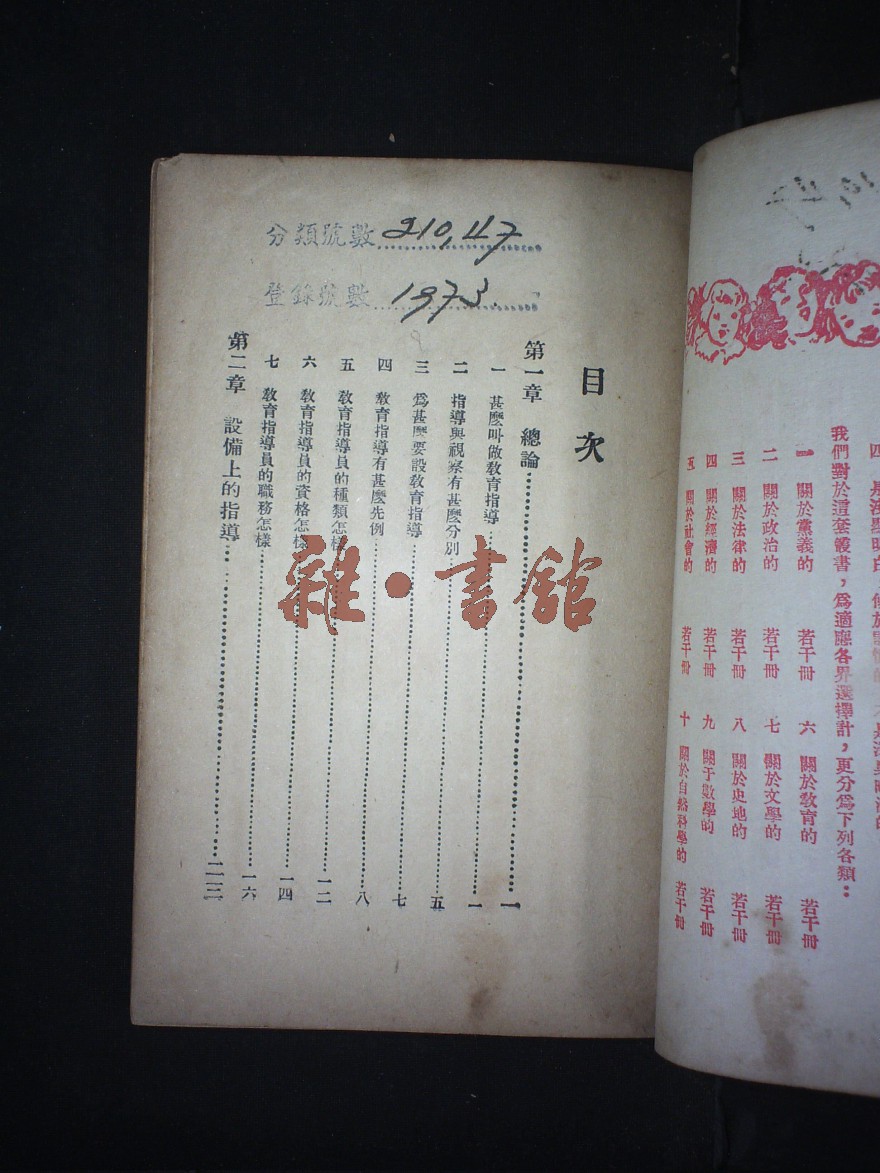 四
我們對於這套叢書，為適應各界選擇計，更分為下列各類：
一 關於黨義的 若干冊 六 關於教育的 若干冊
二 關於政治的 若干冊 七 關於文學的 若干冊
三 關於法律的 若干冊 八 關於史地的 若干冊
四 關於經濟的 若干冊 九 關于數學的 若干冊
五 關於社會的 若干冊 十 關於自然科學的 若干冊
分類號數 210,47
登錄號數 1973
目次
第一章 總論 一
一 甚麼叫做教育指導 一
二 指導與視察有甚麼分別 五
三 為甚麼要設教育指導 七
四 教育指導有甚麼先例 八
五 教育指導員的種類怎樣 一二
六 教育指導員的資格怎樣 一四
七 教育指導員的職務怎樣 一六
第二章 設備上的指導
雜·書館